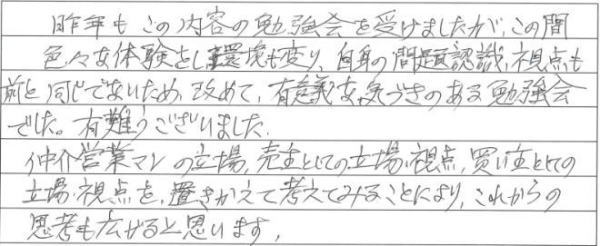 昨年もこの内容の勉強会を受けましたが、この間
色々な体験をし環境も変り、自身の問題認識、視点も
前と同じでないため、改めて、有意義な気づきのある勉強会
でした。有難うございました。
仲介営業マンの立場、売主としての立場・視点、買い主としての
立場・視点を、置きかえて考えてみることにより、これからの
思考も広がると思います。